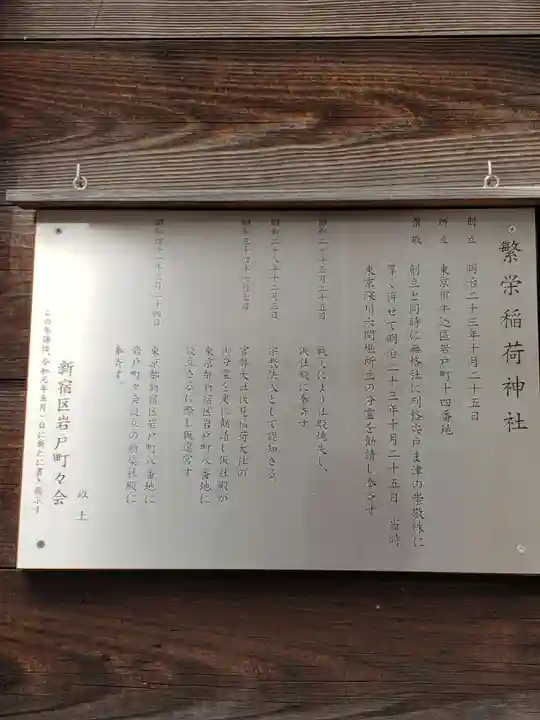 繁栄稲荷神社
創立 明治二十三年十月二十五日
所立 東京市牛込区岩戸町十四番地
崇敬 創立と同時に無格社に列格宍戸ま津の崇敬殊に
篤く併せて明治二十三年十月二十五日 当時
東京深川六間堀所立の分霊を勧請し奉斎す
昭和二十年五月二十五日 戦火により社殿焼失し、
仮社殿に奉斎す
昭和二十八年十二月三日 宗教法人として認知さる。
昭和三十四年七月七日 官幣大社伏見稲荷大社の
御分霊を更に勧請し仮社殿が
東京都新宿区岩戸町八番地に
設立さるに際し仮遷宮す
昭和四十一年三月二十四日 東京都新宿区岩戸町八番地に
岩戸町々会設立の新築社殿に
奉斎す。
以上
新宿区岩戸町々会
この年譜は、令和元年五月一日に新たに書く掲示す